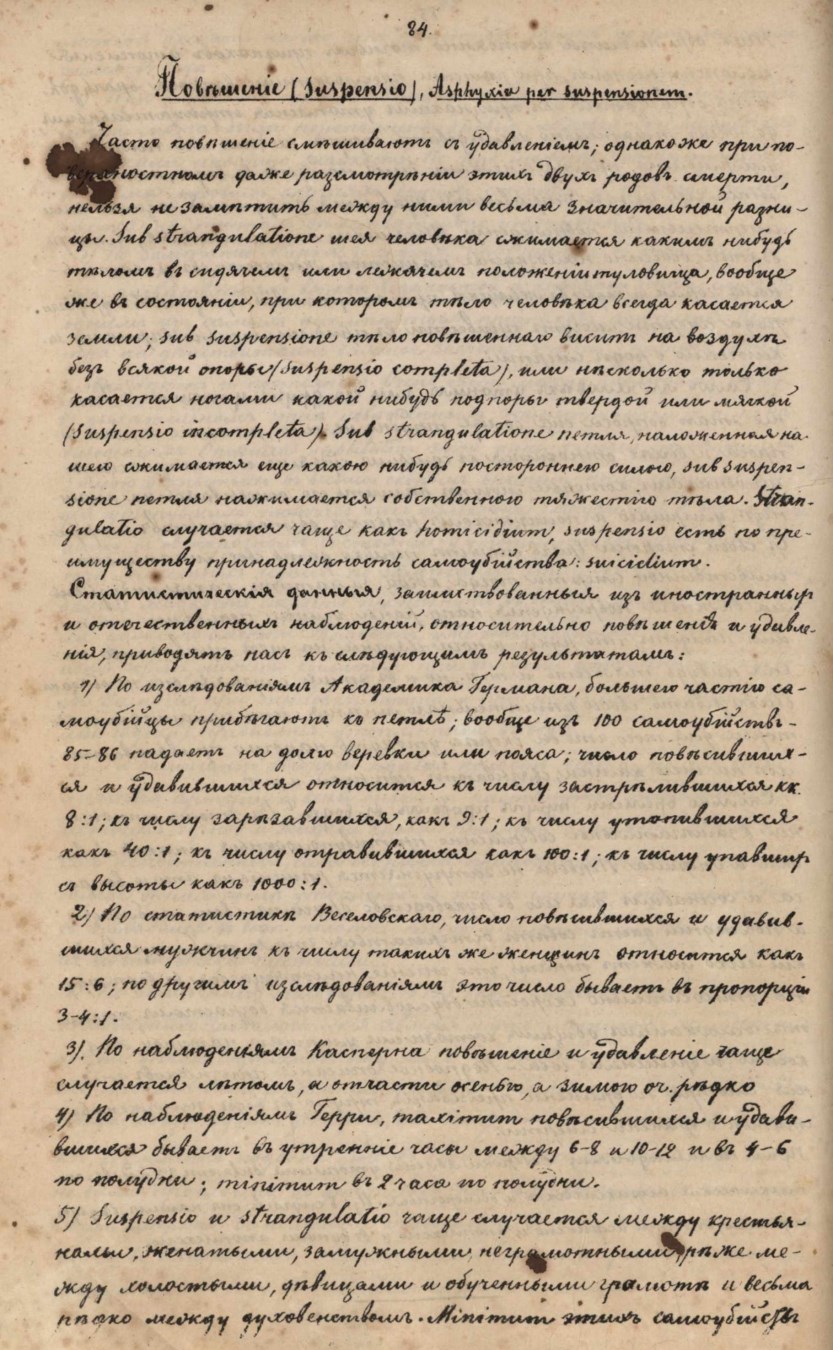 84.
Повѣшеніе (Suspensio), Asphyxia per suspensionem.
Часто повѣшеніе смѣшиваютъ съ удавленіемъ; однакоже при по-
верхностномъ даже разсмотрѣніи этихъ двухъ родовъ смерти,
нельзя не замѣтить между ними весьма значительной разни-
цы. Sub strangulatione шея человѣка сжимается какимъ нибудь
тѣломъ въ сидячемъ или лежачемъ положеніи туловища, вообще
же въ состояніи, при которомъ тѣло человѣка всегда касается
земли; sub suspensione тѣло повѣшеннаго виситъ на воздухѣ
безъ всякой опоры (suspensio completa), или нѣсколько только
касается ногами какой нибудь подпоры твердой или мягкой
(suspensio incompleta). Sub strangulatione петля, наложенная на
шею сжимается еще какою нибудь постороннею силою, sub suspen-
sione петля нажимается собственною тяжестію тѣла. Stran-
gulatio случается чаще какъ homicidium, suspensio есть по пре-
имуществу принадлежность самоубійства: suicidium.
Статистическія данныя, заимствованныя изъ иностранныхъ
и отечественныхъ наблюденій, относительно повѣшенія и удавле-
нія, приводятъ насъ къ слѣдующимъ результатамъ:
1) По изслѣдованіямъ Академика Германа, большею частію са-
моубійцы прибѣгаютъ къ петлѣ; вообще изъ 100 самоубійствъ -
85-86 падаетъ на долю веревки или пояса; число повѣсивших-
ся и удавившихся относится къ числу застрѣлившихся кк.
8:1; къ числу зарѣзавшихся, какъ 9:1; къ числу утопившихся
какъ 40:1; къ числу отравившихся какъ 100:1; къ числу упавшихъ
съ высоты какъ 1000:1.
2) По статистикѣ Веселовскаго, число повѣсившихся и удавив-
шихся мужчинъ къ числу такихъ же женщинъ относится какъ
15:6; по другимъ изслѣдованіямъ это число бываетъ въ пропорціи
3-4:1.
3). По наблюденіямъ Касперна повѣшеніе и удавленіе чаще
случается лѣтомъ, и отчасти осенью, а зимою оч. рѣдко
4) По наблюденіямъ Герри, maximum повѣсившихся и удави-
вшихся бываетъ въ утренніе часы между 6-8 и 10-12 и въ 4-6
по полудни; minimum въ 2 часа по полудни.
5) Suspensio и strangulatio чаще случается между крестья-
нами, женатыми, замужными, неграмотными, рѣже ме-
жду холостыми, дѣвицами и обученными грамотѣ и весьма
рѣдко между духовенствомъ. Minimum этихъ самоубійствъ